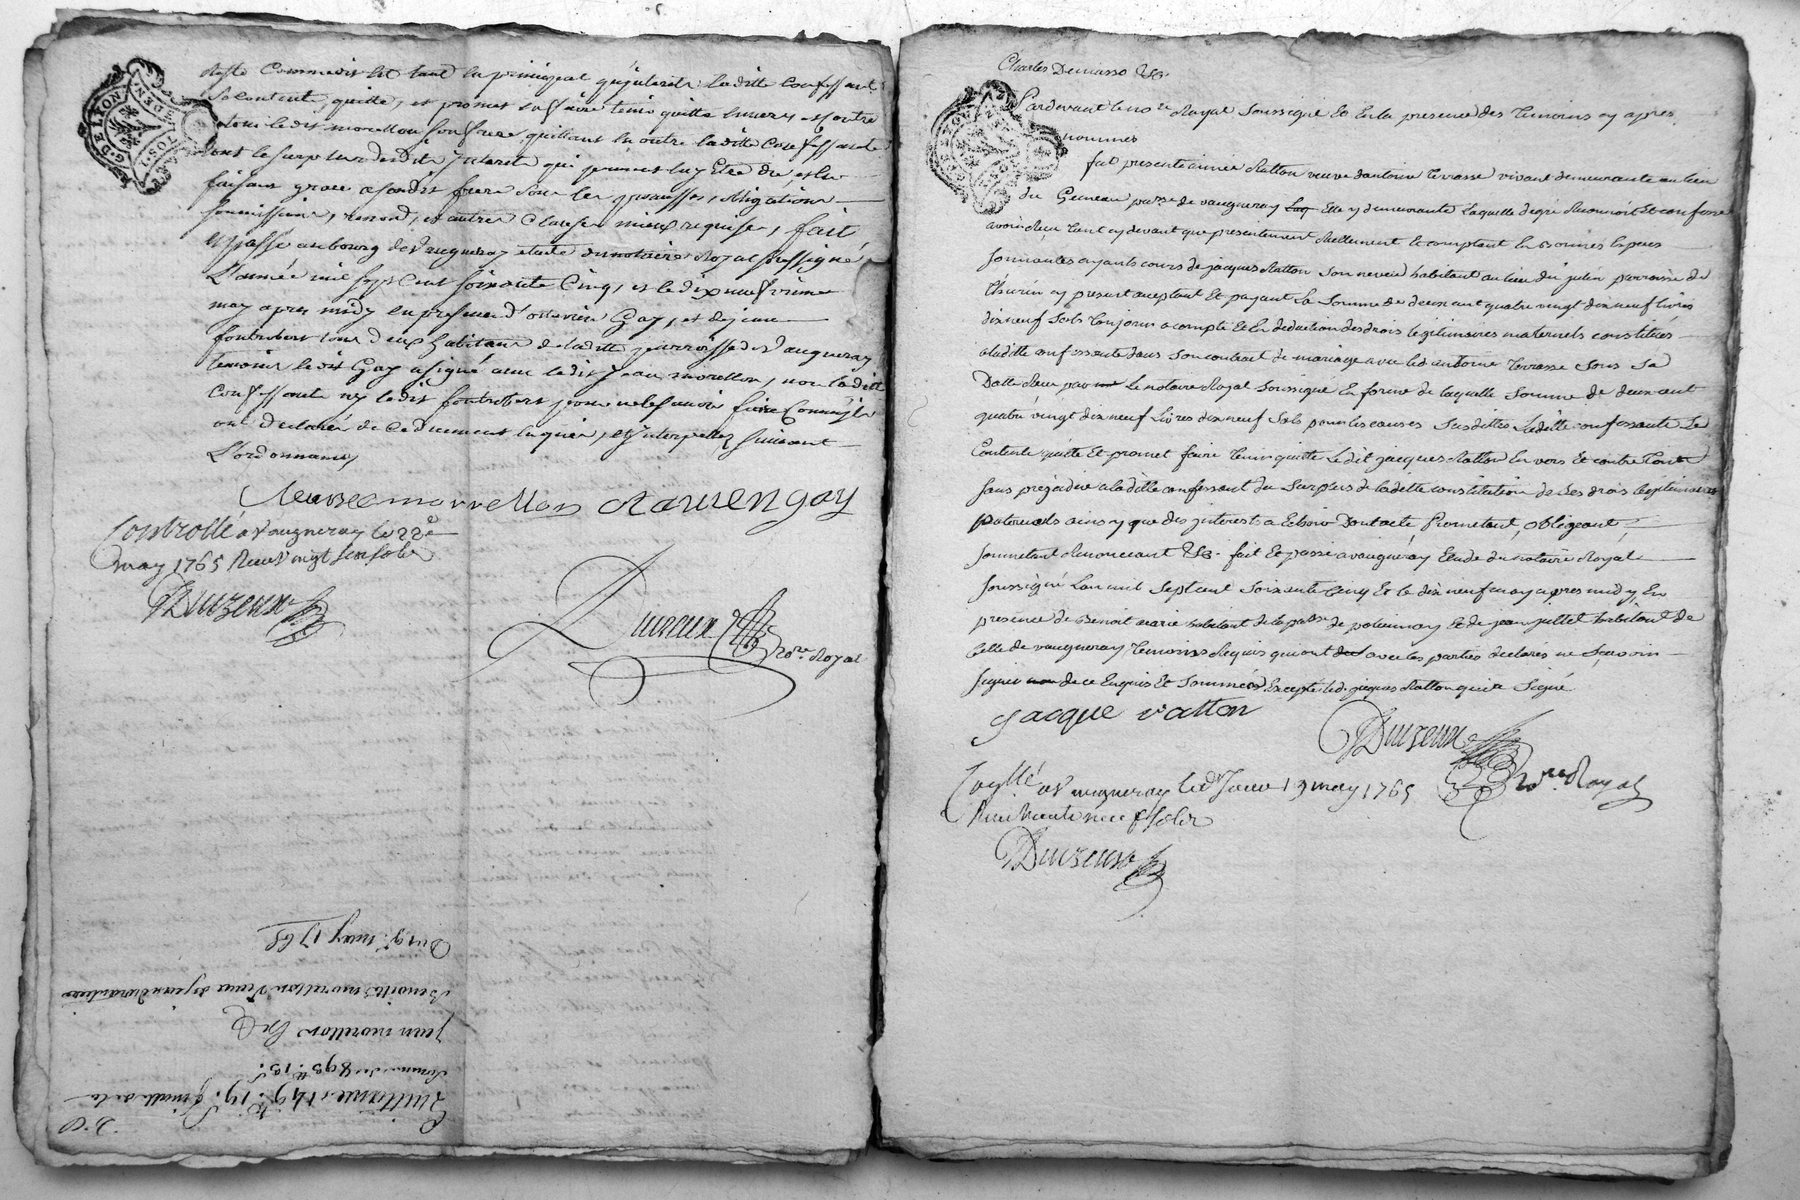 G. D. DE LYON
reste comme dit est tant en principal qu'interets ladite Confessante
se contente, quitte, et promet faire tenir quitte envers et contre
tous ledit morellon son frere quittant en outre ladite Confessante
tout le surplus desdits interets qui peuvent luy Etre du, et luy
faisant grace a sondit frere sous les promesses, obligations
soumissions, renond, et autres Clauses mieux requises, fait
et passé au bourg de Vaugneray etude du notaire Royal soussigné
L'année mil sept cent soixante Cinq, et le dix neuvieme
may apres midy en presence d' Gay, et de jean
fontrobert tous deux habitans de ladite parroisse de Vaugneray
temoins ledit Gay a signé avec ledit jean morellon, non ladite
Confessante ny ledit fontrobert pour ne le savoir faire Comme ils
ont declaré de ce duement enquis, et interpellez suivant
L'ordonnance
morrellon gay
Controllé a Vaugneray le 22e
may 1765 Receu vingt six sols
Duizeux
Duizeux
nore. Royal
Du 19e. may 1765
Benoitte morellon Veuve
jean morellon
Somme de 895 tt. 15 s.
Quittance 149 tt. 19 s. finalle de la
Charles Demasso &a.
Pardevant le nore Royal Soussigné Et En la presence des Temoins cy apres
nommés
fut presente Ratton veuve d'antoine Terrasse vivant demeurante au lieu
du Geneau parse de vaugneray Elle y demeurante Laquelle de gré Reconnoit Et confesse
avoir Receu Tant cy devant que presentement Reellement Et comptant En bonnes Especes
sonnantes ayants cours de jacques Ratton Son neveu habitant au lieu du julin parroisse de
thurin cy present aceptant Et payant La Somme de deux cent quatre vingt dix neuf livres
dix neuf Sols Toujours a compte Et En deduction des droits legitimaires maternels constitués
a ladite confessante dans Son contract de mariage avec led. antoine Terrasse Sous Sa
Datte Receu par Le notaire Royal Soussigné En forme de laquelle Somme de deux cent
quatre vingt dix neuf Livres dix neuf Sols pour les causes Susdittes Ladite confessante Se
Contente quitte Et promet faire Tenir quitte Ledit jacques Ratton En vers Et contre Tous
Sans prejudice a ladite confessante du Surplus de ladite constitution de Ses droits legitimaires
paternels ainsy que des interets a Echoir Dont acte Promettant, obligeant,
soumettant Renonceant &a. fait Et passé a vaugneray Etude du notaire Royal
soussigné Lan mil Sept cent Soixante Cinq Et le dix neuf may apres midy, En
presence de Benoit marie habitant de la parse de polionnay Et de jean jullet habitant de
celle de vaugneray Temoins Requis qui ont avec les parties declaré ne Sçavoir
Signer de ce Enquis Et Sommés Excepté led. jacques Ratton qui a Signé
Jacque ratton
Duizeux
nore. Royal
Conllé a Vaugneray led. Jour 19 may 1765
Receu trente neuf Sols
Duizeux